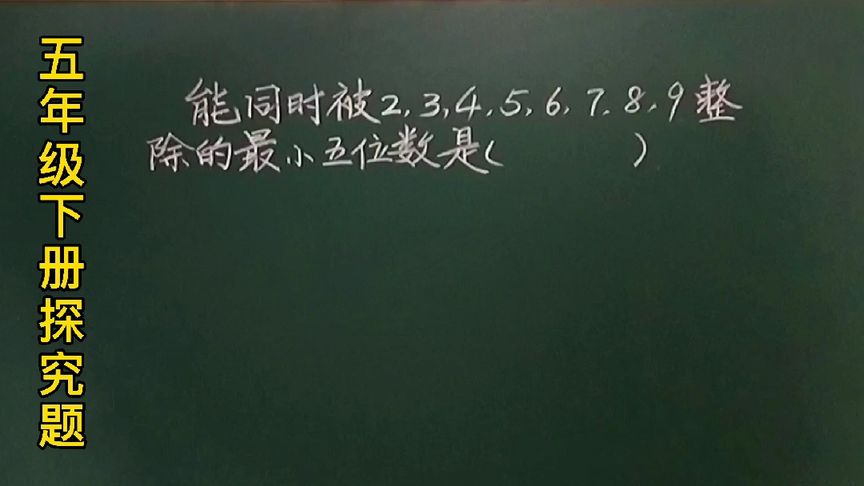 五年级下册探究题
能同时被2,3,4,5,6,7,8,9整
除的最小五位数是(      )